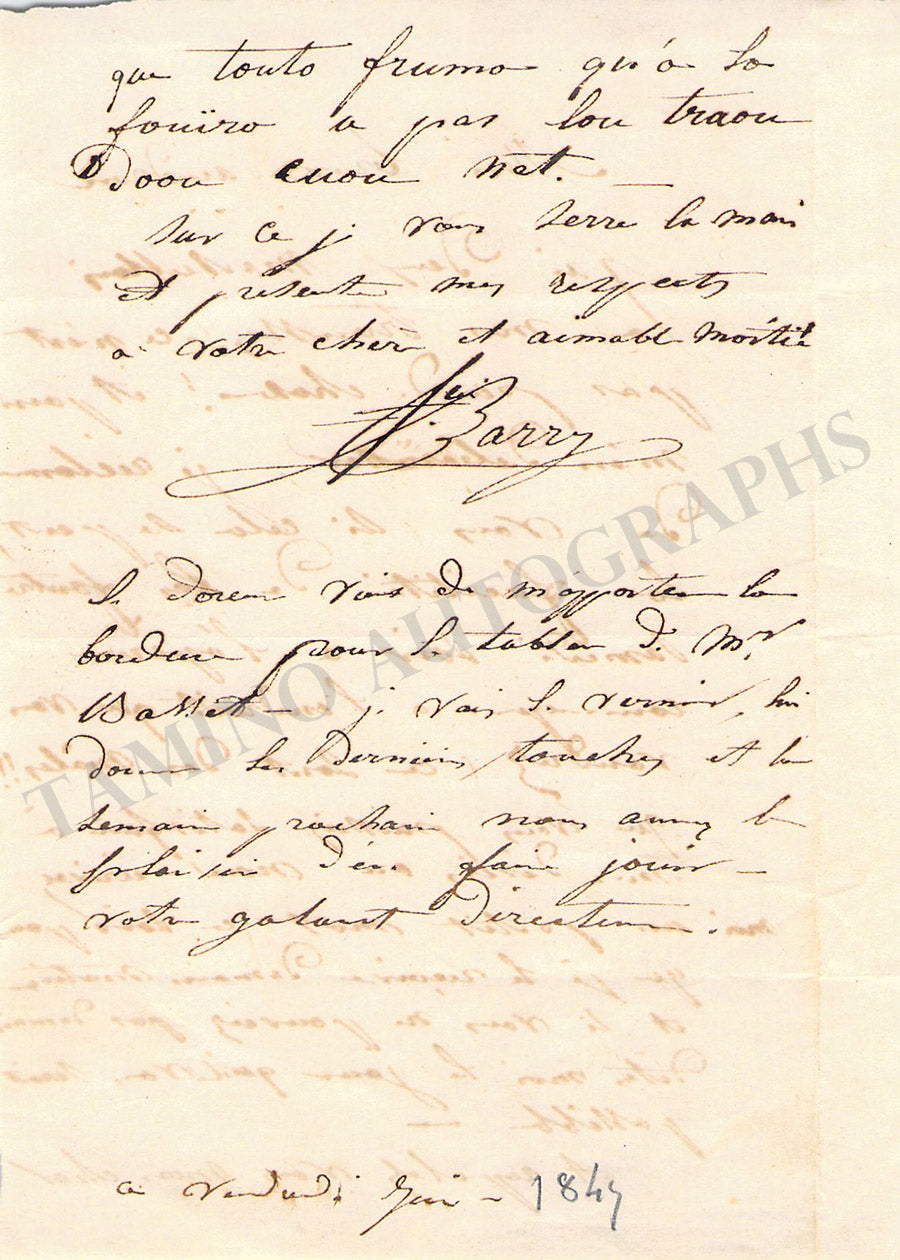 que touto frumo qu'a la
fouïro a pas lou traou
Doou cuou net.
Sur ce je vous serre la main
et présente mes respects
a votre chère et aimable moitié
Barry
le doreur vient de m'apporter la
bordure pour le tableau de Mr
Basset - je vais le vernir, lui
donner les dernieres touches et la
semaine prochaine nous aurons le
plaisir d'en faire jouir -
votre galant Directeur.
ce vendredi Juin - 184
TAMINO AUTOGRAPHS